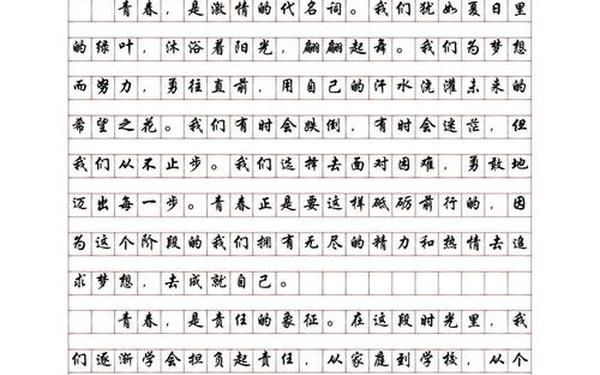 青春，是激情的代名词。我们犹如夏日里
的绿叶，沐浴着阳光，翩翩起舞。我们为梦想
而努力，勇往直前，用自己的汗水浇灌未来的
希望之花。我们有时会跌倒，有时会迷茫，但
我们从不止步。我们选择去面对困难，勇敢地
迈出每一步。青春正是要这样砥砺前行的，因
为这个阶段的我们拥有无尽的精力和热情去追
求梦想，去成就自己。
青春，是责任的象征。在这段时光里，我
们逐渐学会担负起责任，从家庭到学校，从个